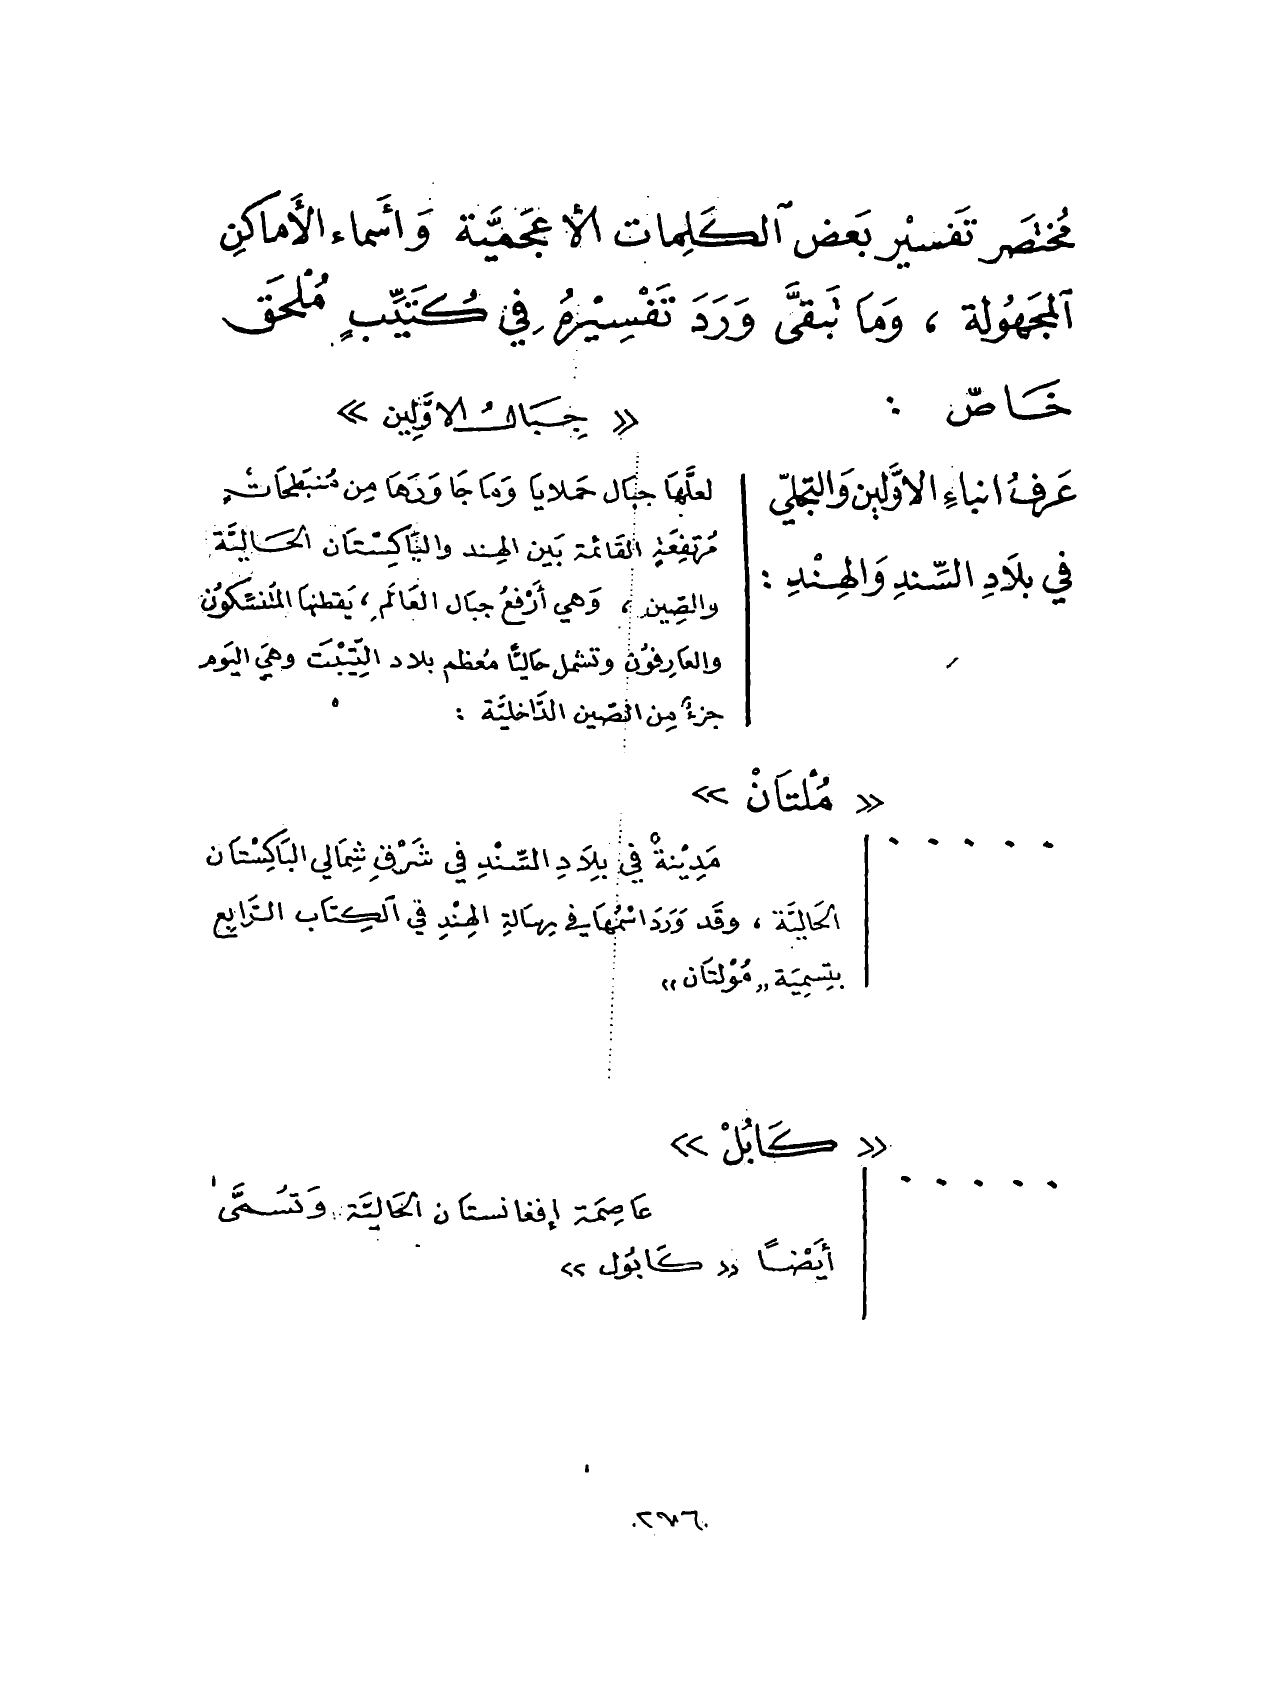 مُختصَر تَفسيْر بَعض ٱلكَلِمات الأعجَميَّة وَأسَماء الأَماكنِ
ٱلمجَهُولة ، وَمَا تَبقىَّ وَرَدَ تَفْسِيْرهُ في كُتَيِّبٍ مُلْحَق
خَاصّ :
« جِبَالُ الاوَّلِين »
عَرفُ انباءِ الاوَّلين وَالتجلّي
في بلَادِ السِّندِ وَالهِنْدِ :
لعلَّهَا جبَال حَملايا وَمَا جَاوَرَهَا مِن مُنبَطحَاتٍ
مُرتفِعَةٍ القَائمة بَين الهِند والبَاكِسْتَان الحَاليَّة
والصِّين ، وَهي أرْفعُ جبَال العَالَم ، يَقطنهَا المُتنسّكونُ
والعَارِفوُن وتشمل حَاليًّا مُعظم بلاد التِّيْبْت وهيَ اليَوم
جزءٌ مِن الصّين الدَّاخليَّة :
« مُلْتَانْ »
. . . . .
مَدِيْنةٌ في بلَادِ السِّنْدِ في شَرْقِ شِمَالي البَاكِسْتَان
الحَاليَّة ، وقَد وَرَدَ اسْمُهَا في رِسَالةِ الهِنْدِ في ٱلكِتَاب الرَّابِع
بتِسمِيَة „ مُوْلتَان “
« كَابُلْ »
. . . . .
عَاصِمَة إفغَانستَان الحَاليَّة وَتسُمىَّ
أيَضْاً « كَابوُل »
٢٧٦